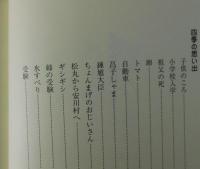 四季の思い出
子供のころ
小学校入学
祖父の死
潮
トマト
自動車
昌子しゃま
鎌尴大臣
ちょんまげのおじいさん
松丸から安川村へ
ギシギシ
蜂の受験
水すべり
受験